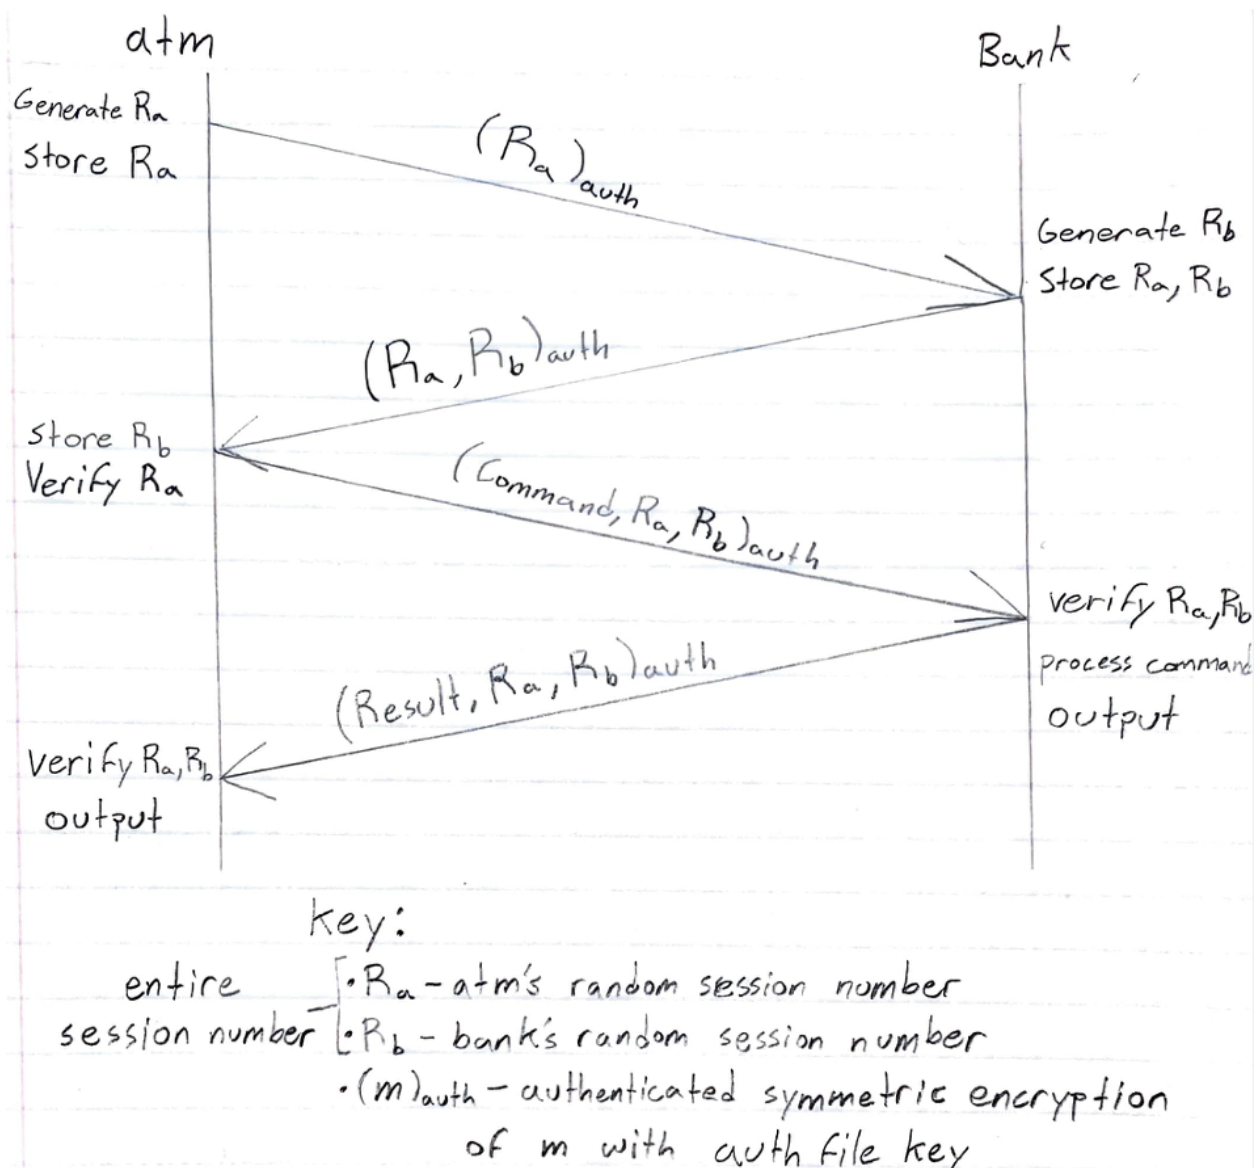 atm
Bank
Generate Ra
Store Ra
(Ra)auth
Generate Rb
Store Ra, Rb
(Ra, Rb)auth
Store Rb
Verify Ra
(Command, Ra, Rb)auth
verify Ra,Rb
process command
output
(Result, Ra, Rb)auth
verify Ra,Rb
output
key:
entire
session number
• Ra - atm's random session number
• Rb - bank's random session number
• (m)auth - authenticated symmetric encryption
of m with auth file key